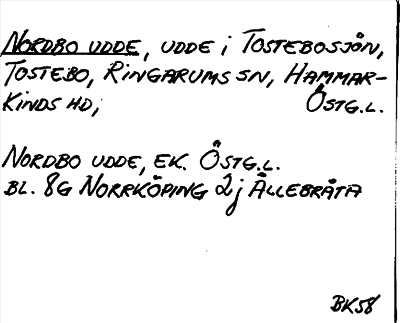 NORDBO UDDE, UDDE i TOSTEBOSJÖN,
TOSTEBO, RINGARUMS SN, HAMMAR-
KINDS HD; ÖSTG.L.
NORDBO UDDE, EK. ÖSTG.L.
BL. 8G NORRKÖPING 2j ÄLLEBRÅTA
BK58